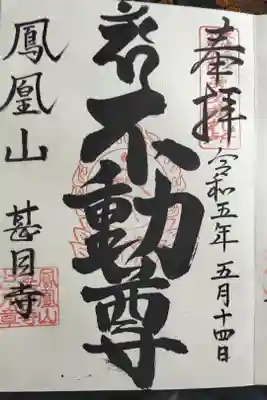 奉拝 令和五年五月十四日
不動尊
鳳凰山 甚目寺